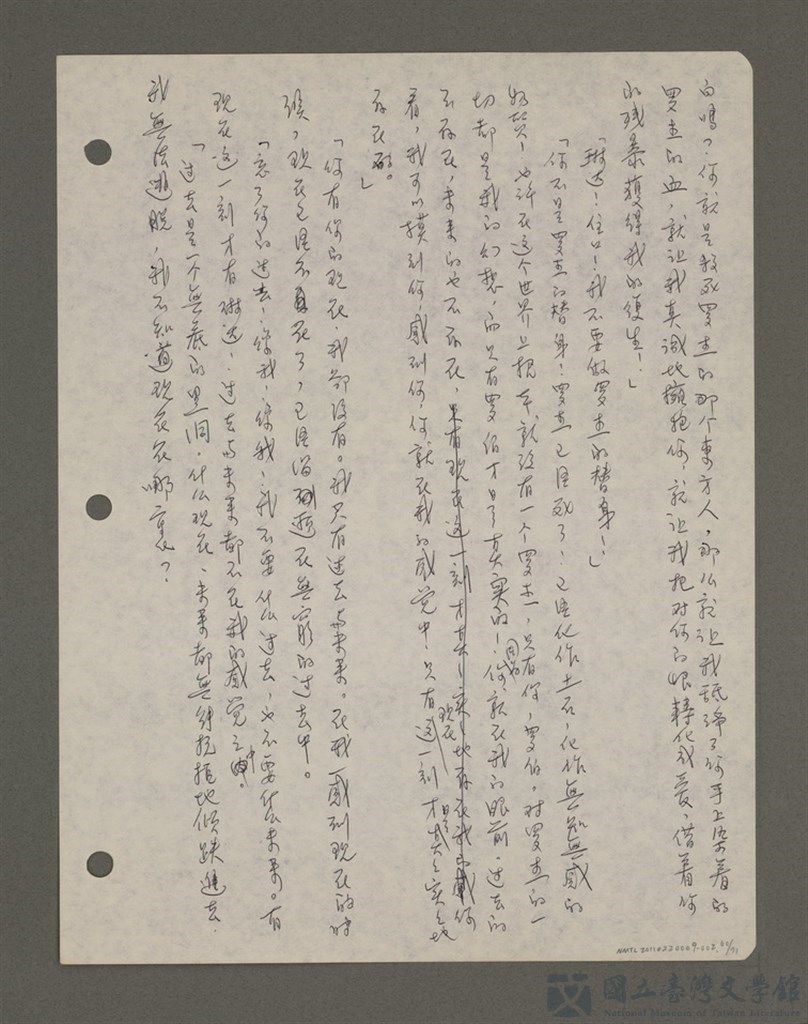 白嗎？你就是殺死罗杰的那个東方人，那么就让我舐淨了你手上染着的
罗杰的血，就让我真誠地擁抱你，就让我把对你的恨轉化成爱，借着你
的残暴獲得我的復生！」
「琳达！住口！我不要做罗杰的替身！」
「你不是罗杰的替身！罗杰已经死了！已经化作土石，化作無知無感的
物質！也許在这个世界上根本就没有一个罗杰，只有你，罗伯。对罗杰的一
切都是我的幻想，而只有罗伯才是真实的！因为你就在我的眼前。过去的
不存在，未来的也不存在，只有现在这一刻才真真实实地存在我的感 你
看，我可以摸到你，感到你，你就在我的感觉中！只有现在这一刻才是真真实实地
存在的。」
「你有你的现在，我卻没有。我只有过去与未来。在我一感到现在的时
候，现在已经不在了，已经溜逝在無窮的过去中。
「忘了你的过去！像我！像我！我不要什么过去，也不要什么未来。有
现在这一刻才有琳达！过去与未来都不在我的感觉之中。
「过去是一个無底的黑洞，什么现在、未来都無付抗拒地傾跌進去。
我無法逃脱，我不知道现在在哪裏？
NMTL 20110220009-002
國立臺灣文學館
National Museum of Taiwan Literature